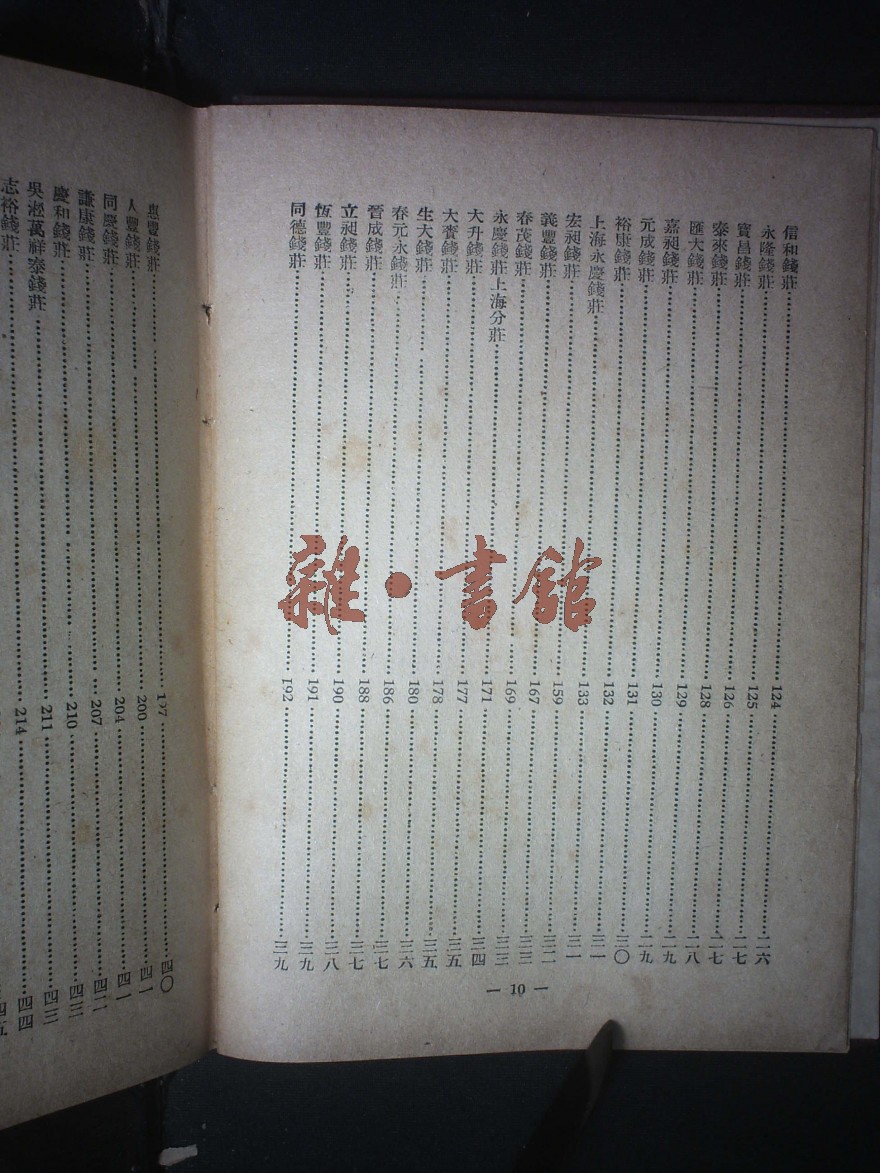 信和錢莊……124……二六
永隆錢莊……125……二七
寶昌錢莊……126……二七
泰來錢莊……128……二八
匯大錢莊……129……二九
嘉昶錢莊……130……二九
元成錢莊……131……三〇
裕康錢莊……132……三一
上海永慶錢莊……133……三一
宏昶錢莊……159……三二
義豐錢莊……167……三三
春茂錢莊……169……三三
永慶錢莊上海分莊……171……三四
大升錢莊……177……三五
大賚錢莊……178……三五
生大錢莊……180……三六
春元永錢莊……186……三七
晉成錢莊……188……三七
立昶錢莊……190……三八
恆豐錢莊……191……三九
同德錢莊……192……三九
— 10 —
惠豐錢莊……197……四〇
人豐錢莊……200……四一
同慶錢莊……204……四一
謙康錢莊……207……四二
慶和錢莊……210……四三
吳淞萬祥泰錢莊……211……四三
志裕錢莊……214……四四
四五
雜·書館